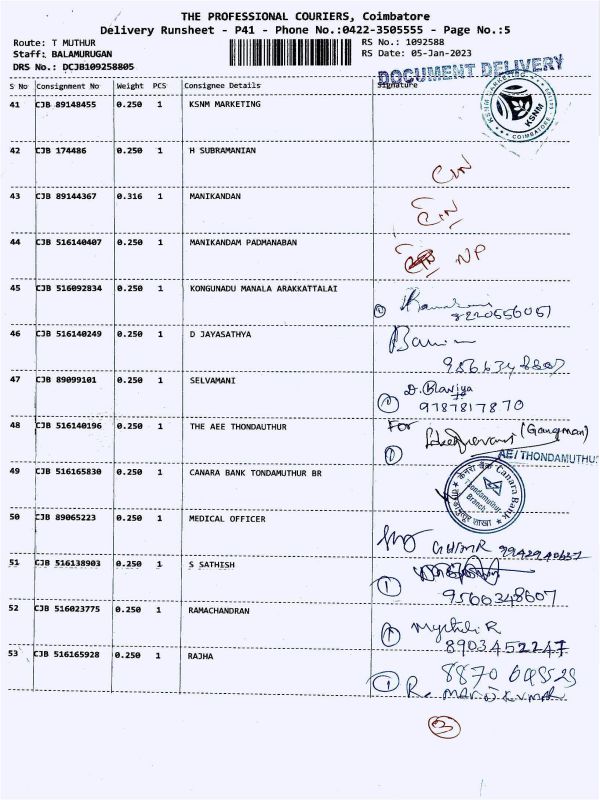 THE PROFESSIONAL COURIERS, Coimbatore
Delivery Runsheet - P41 - Phone No.:0422-3505555 - Page No.:5
Route: T MUTHUR RS No.: 1092588
Staff: BALAMURUGAN RS Date: 05-Jan-2023
DRS No.: DCJB109258805
DOCUMENT DELIVERY
S No Consignment No Weight PCS Consignee Details Signature
41 CJB 89148455 0.250 1 KSNM MARKETING
KSNM
COIMBATORE
42 CJB 174486 0.250 1 H SUBRAMANIAN
43 CJB 89144367 0.316 1 MANIKANDAN
44 CJB 516140407 0.250 1 MANIKANDAM PADMANABAN
NP
45 CJB 516092834 0.250 1 KONGUNADU MANALA ARAKKATTALAI
8220556051
46 CJB 516140249 0.250 1 D JAYASATHYA
47 CJB 89099101 0.250 1 SELVAMANI
9787817870
48 CJB 516140196 0.250 1 THE AEE THONDAUTHUR
For
(Gangman)
AE/THONDAMUTHU
49 CJB 516165830 0.250 1 CANARA BANK TONDAMUTHUR BR
केनरा बैंक Canara Bank
Thondamuthur
Branch
शाखा
50 CJB 89065223 0.250 1 MEDICAL OFFICER
51 CJB 516138903 0.250 1 S SATHISH
9566348607
52 CJB 516023775 0.250 1 RAMACHANDRAN
8903452247
53 CJB 516165928 0.250 1 RAJHA
R. MANOJ KUMAR
3